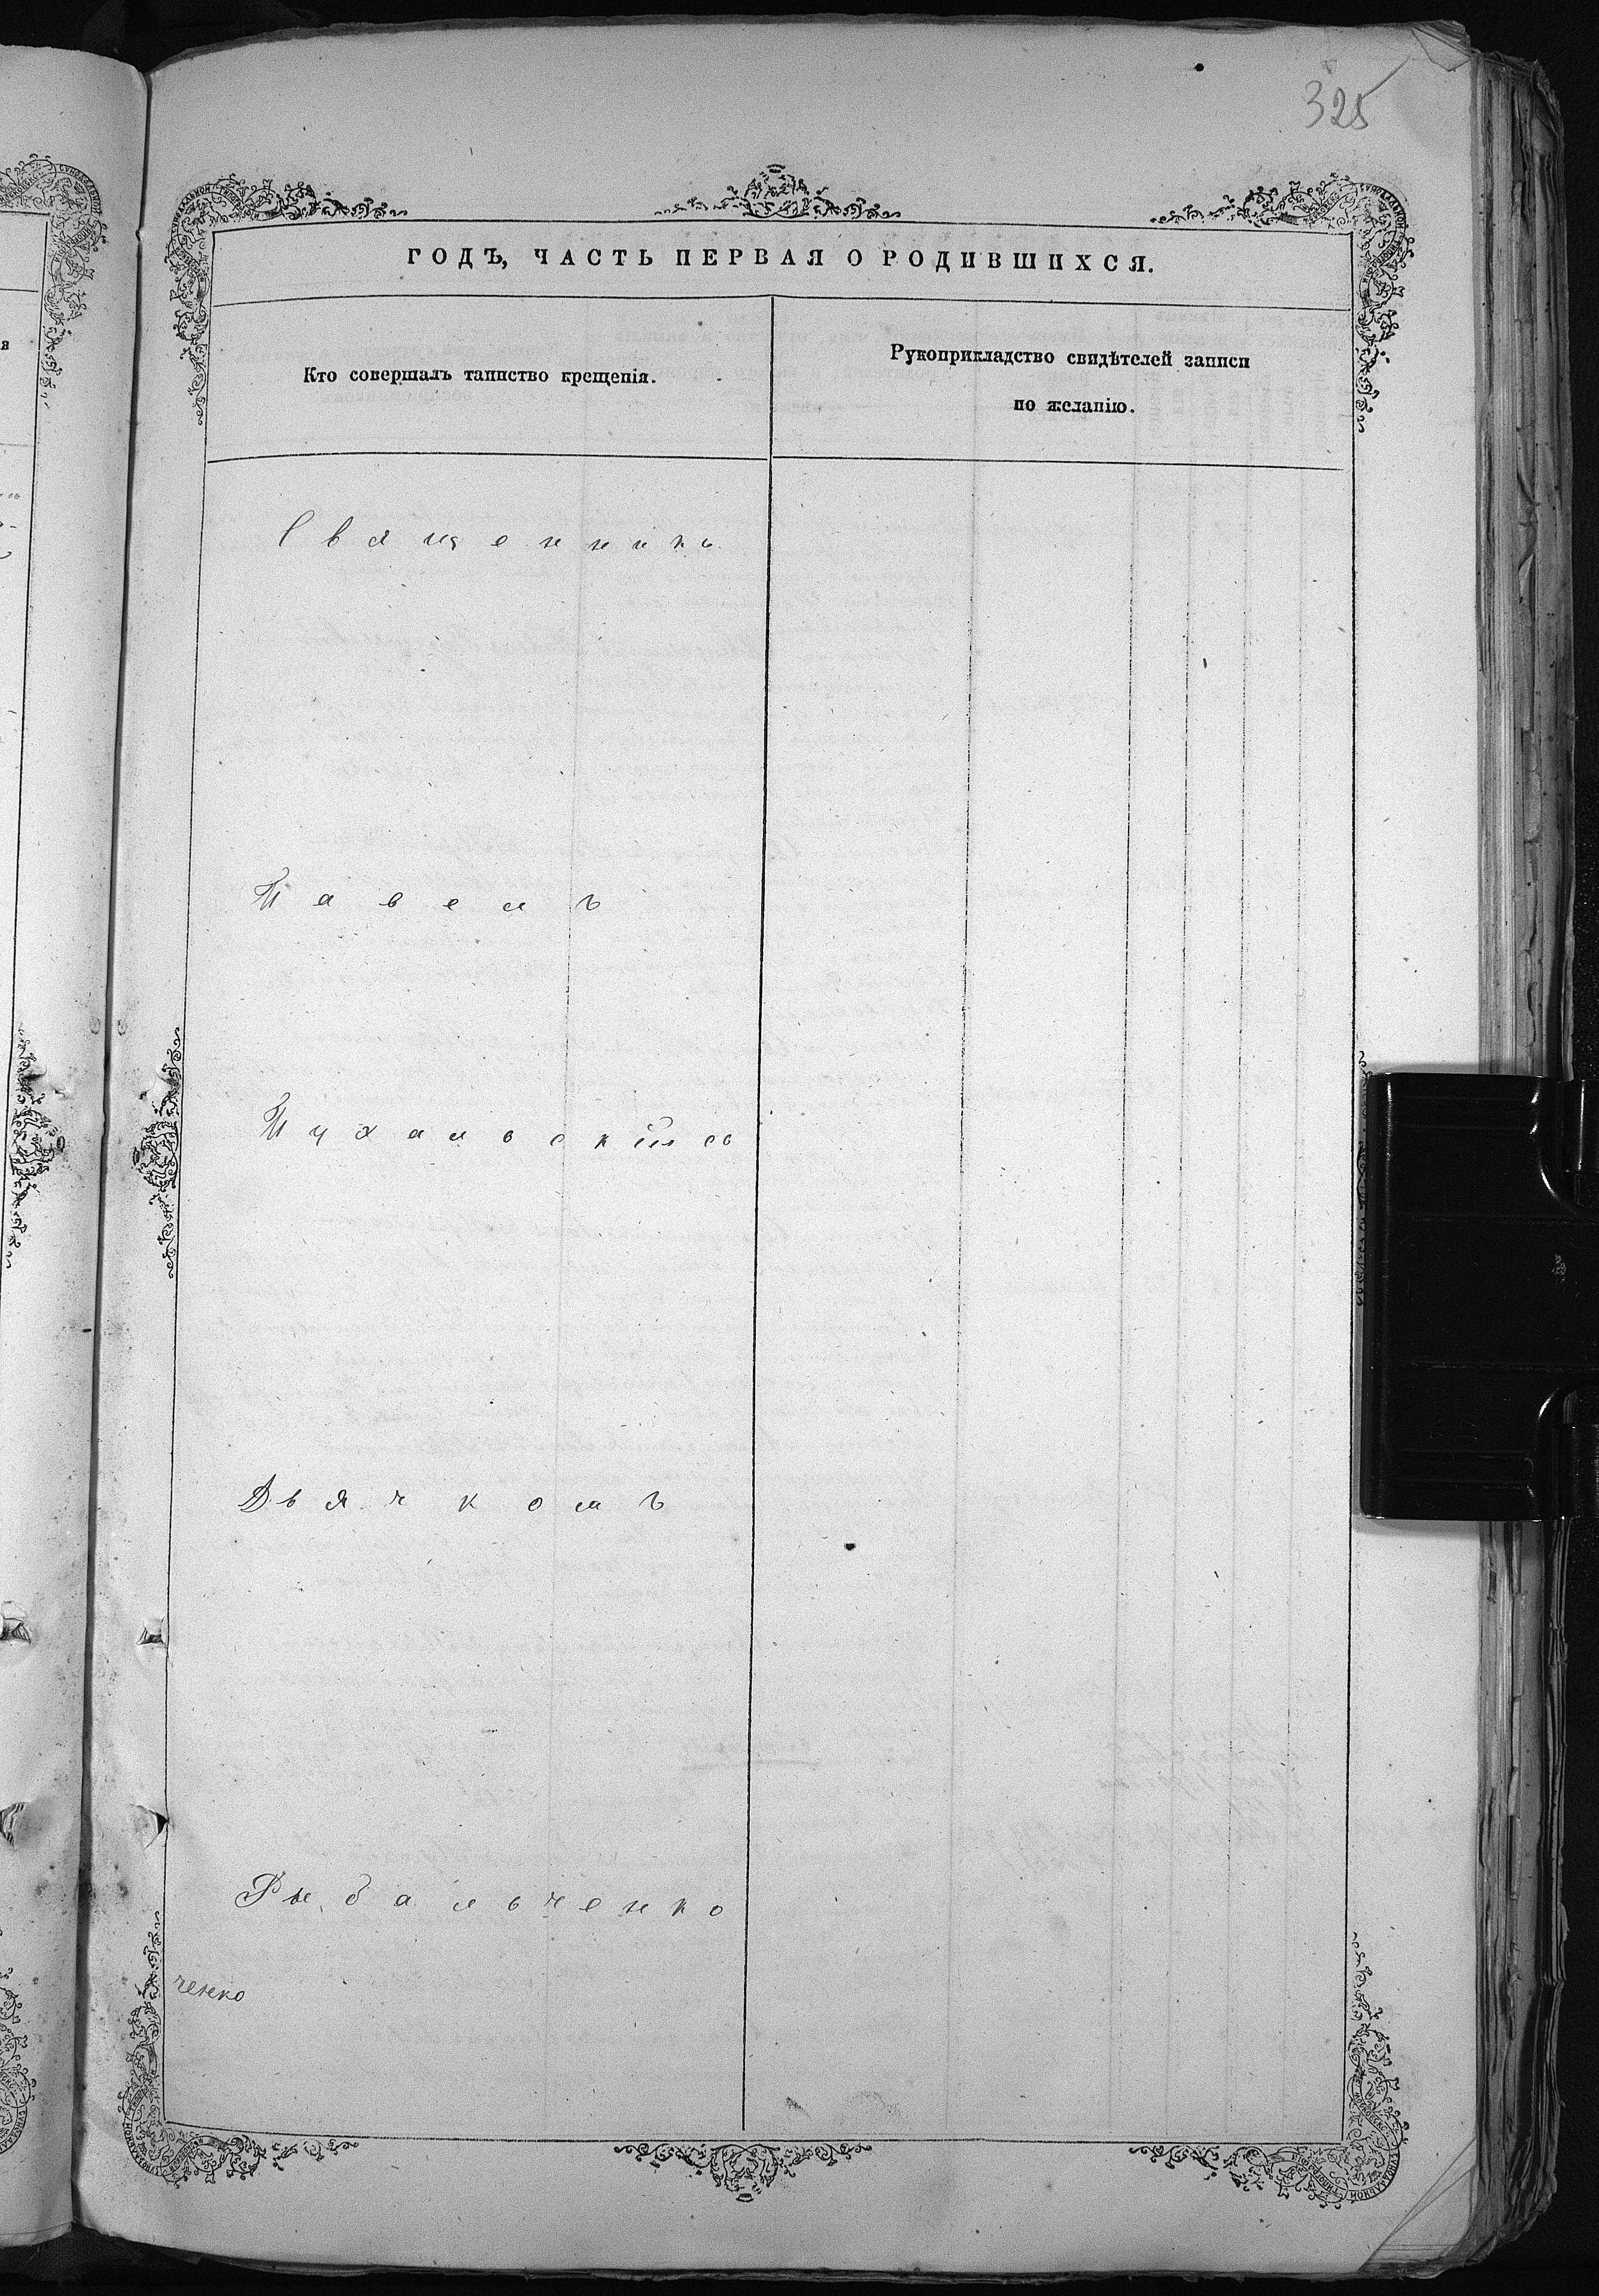 325
ГОДЪ, ЧАСТЬ ПЕРВАЯ О РОДИВШИХСЯ.
Кто совершалъ таинство крещенія.
Рукоприкладство свидѣтелей записи
по желанію.
Священникъ
Павелъ
Пухальскій съ
Дьячкомъ
Рыбальченко
ченко